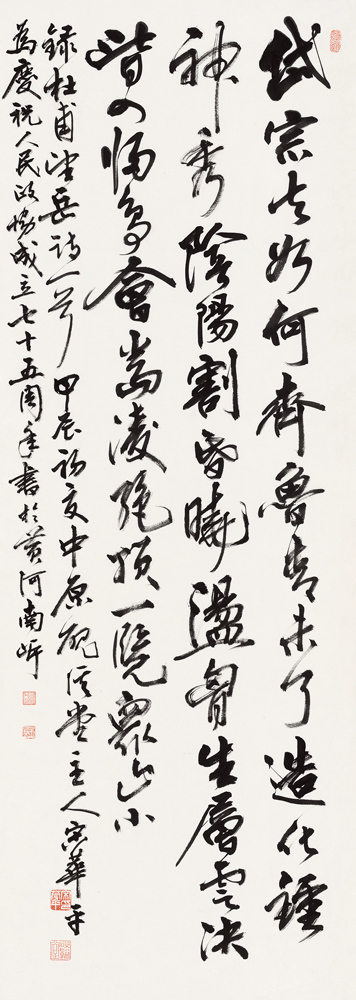 岱宗夫如何齊魯青未了造化鍾
神秀陰陽割昏曉盪胷生層雲決
眥入歸鳥會當凌絕頂一覽眾山小
録杜甫望岳詩一首 甲辰初夏中原堂主人宋華平
為慶祝人民政協成立七十五周年書於黃河南岸